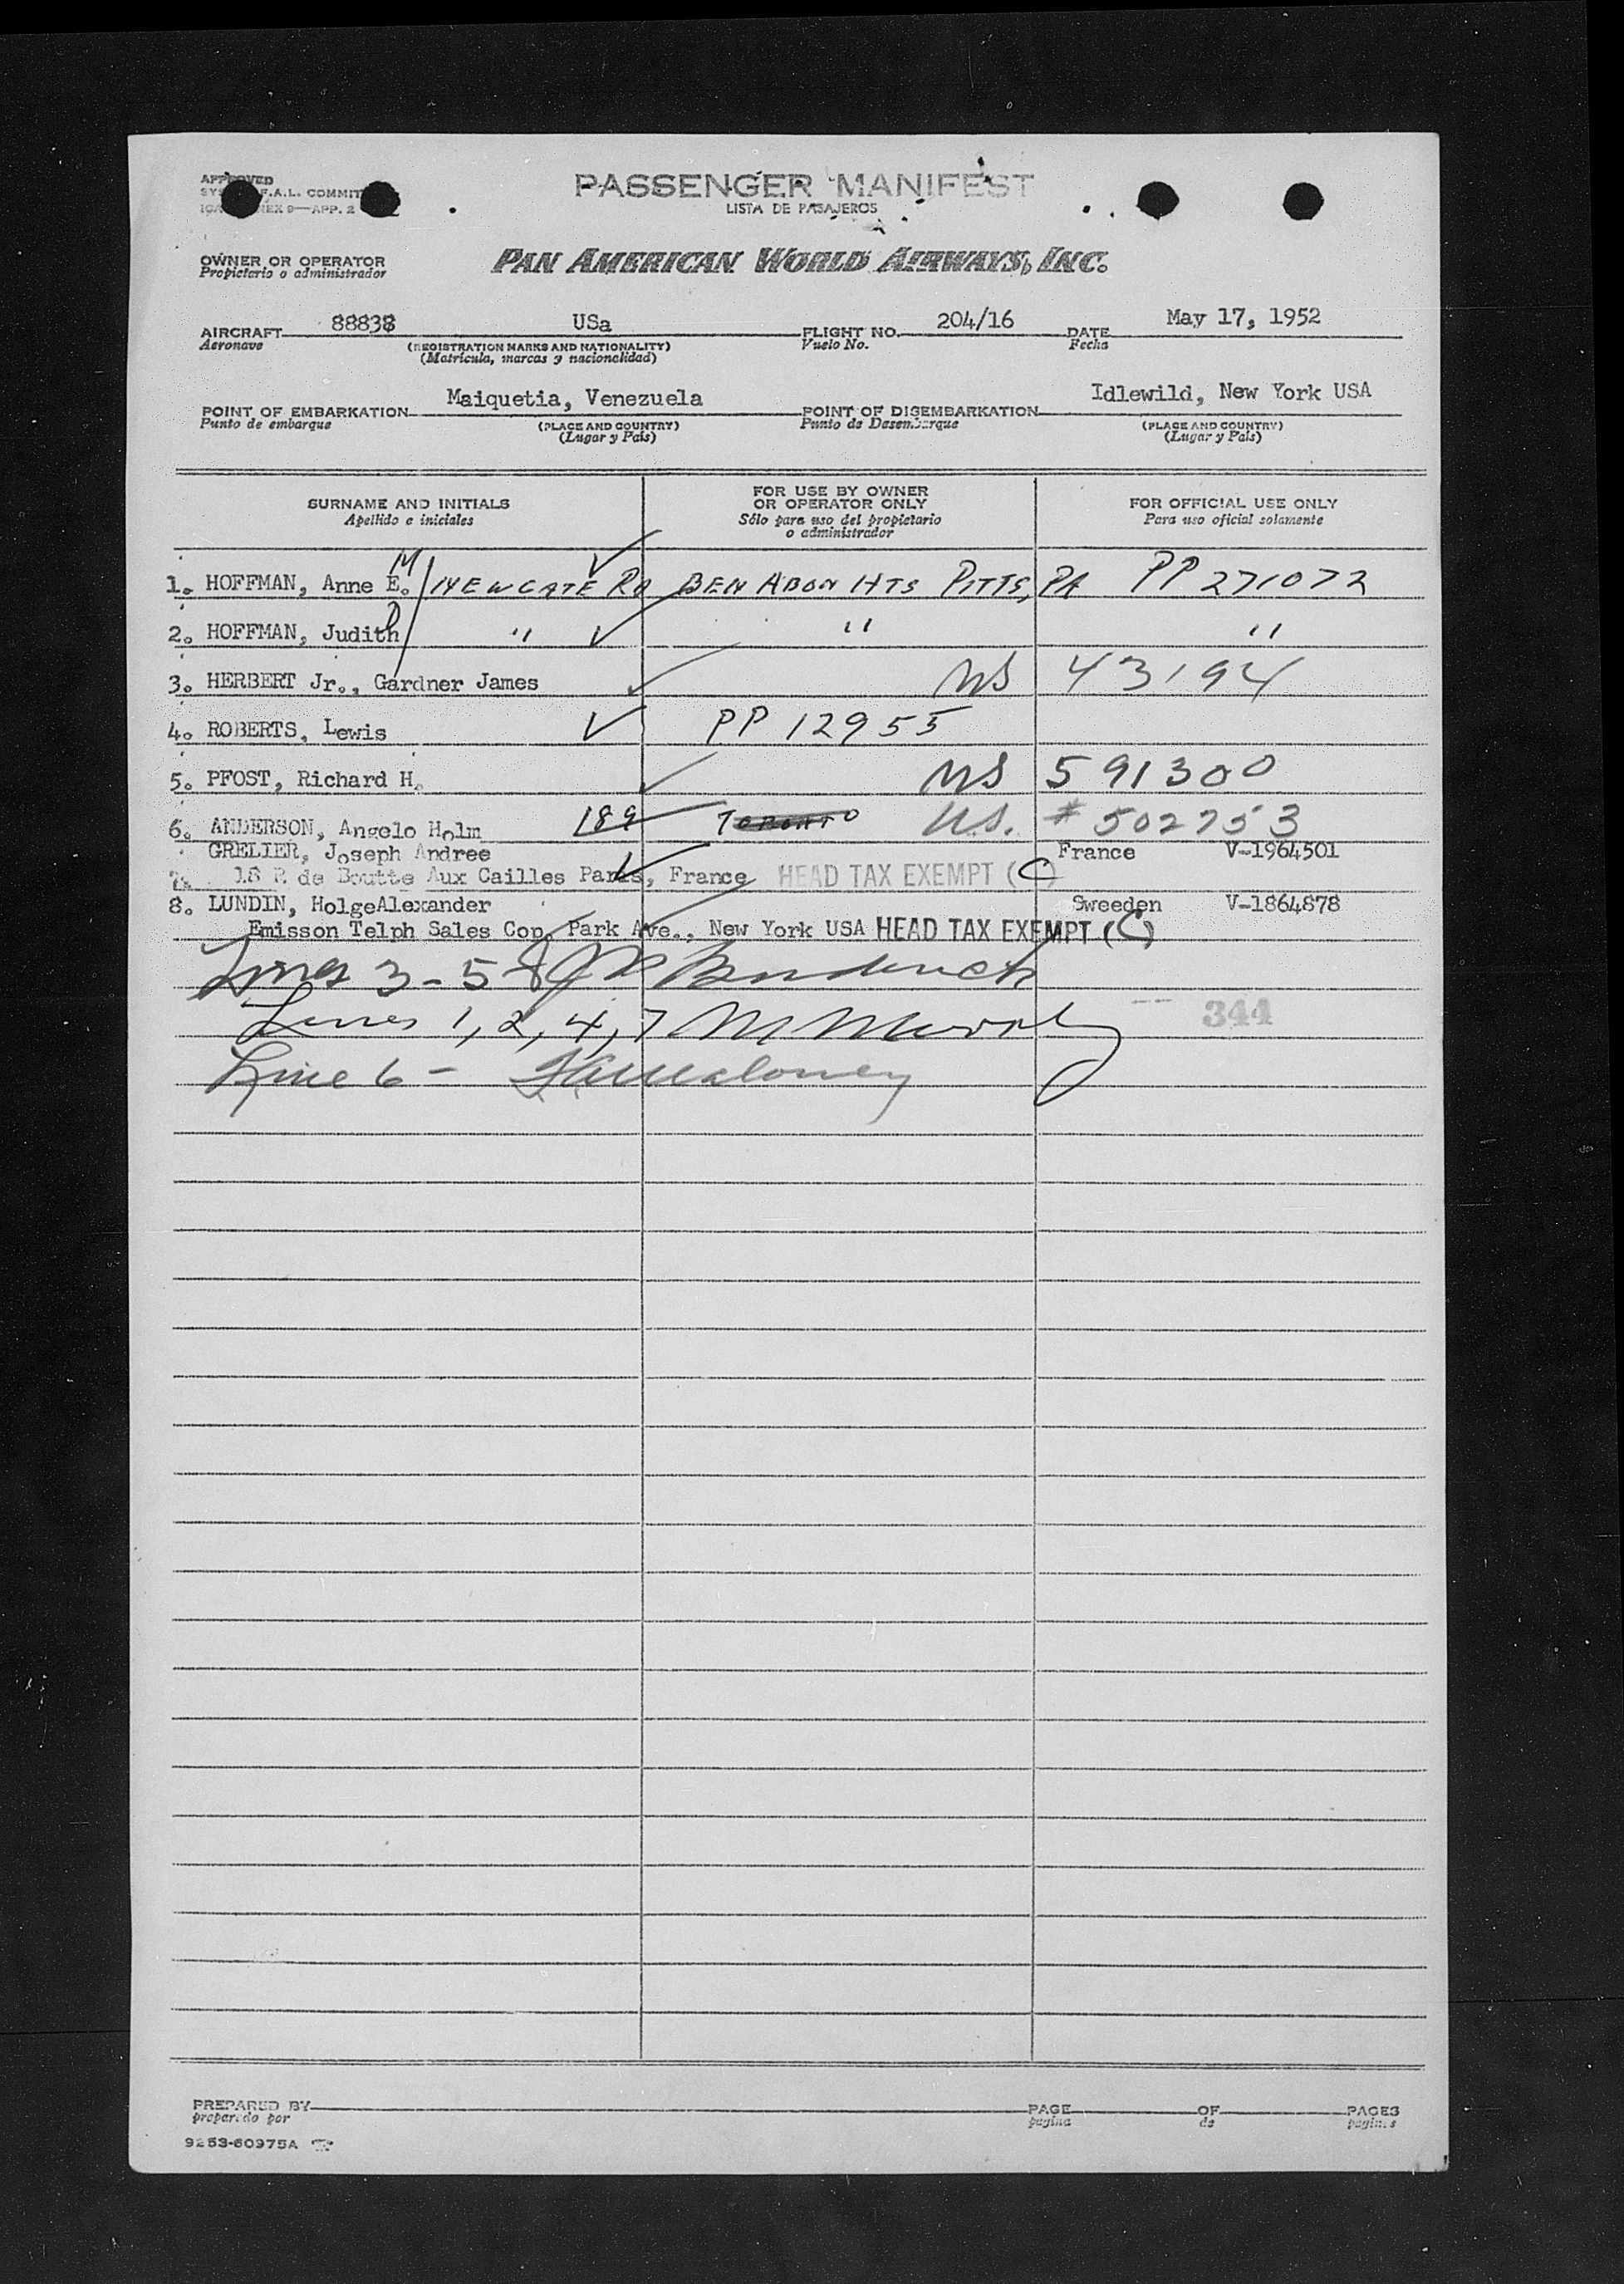 APPROVED
F.A.L. COMMIT
9—APP. 2
PASSENGER MANIFEST
LISTA DE PASAJEROS
OWNER OR OPERATOR
Propietario o administrador
PAN AMERICAN WORLD AIRWAYS, INC.
AIRCRAFT 88838 USa FLIGHT NO. 204/16 DATE May 17, 1952
Aeronave (REGISTRATION MARKS AND NATIONALITY) Vuelo No. Fecha
(Matricula, marcas y nacionalidad)
POINT OF EMBARKATION Maiquetia, Venezuela POINT OF DISEMBARKATION Idlewild, New York USA
Punto de embarque (PLACE AND COUNTRY) Punto de Desembarque (PLACE AND COUNTRY)
(Lugar y País) (Lugar y País)
SURNAME AND INITIALS FOR USE BY OWNER OR OPERATOR ONLY FOR OFFICIAL USE ONLY
Apellido e iniciales Sólo para uso del propietario o administrador Para uso oficial solamente
1. HOFFMAN, Anne E. M NEWGATE RD BEN ABON HTS PITTS, PA PP 271072
2. HOFFMAN, Judith " " "
3. HERBERT Jr., Gardner James US 43194
4. ROBERTS, Lewis PP 12955
5. PFOST, Richard H. US 591300
6. ANDERSON, Angelo Holm 189 TORONTO U.S. # 502753
GRELIER, Joseph Andree France V-1964501
18 R de Boutte Aux Cailles Paris, France HEAD TAX EXEMPT (C)
8. LUNDIN, HolgeAlexander Sweeden V-1864878
Emisson Telph Sales Cop, Park Ave., New York USA HEAD TAX EXEMPT (C)
Lines 3-5-8
Lines 1, 2, 4, 7 M Murphy 344
Line 6 - Maloney
PREPARED BY PAGE OF PAGES
preparado por pagina de paginas
9253-60975A